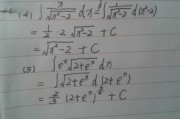 (4) ∫ x/√(x²-2) dx = ½∫ 1/√(x²-2) d(x²-2)
= ½·2√(x²-2) + C
= √(x²-2) + C
(5) ∫eˣ√(2+eˣ) dx
= ∫√(2+eˣ) d(2+eˣ)
= ⅔(2+eˣ)^(3/2) + C